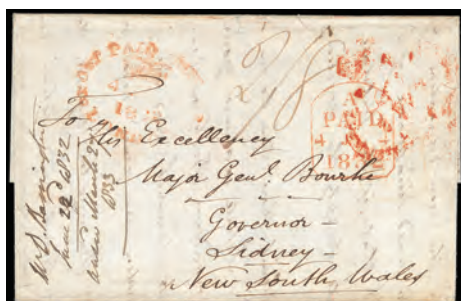 POST PAID
2/8
A
PAID
1832
To His Excellency
Major Genl. Bourke
Governor -
Sidney -
New South Wales
1832
answd March 29
1833